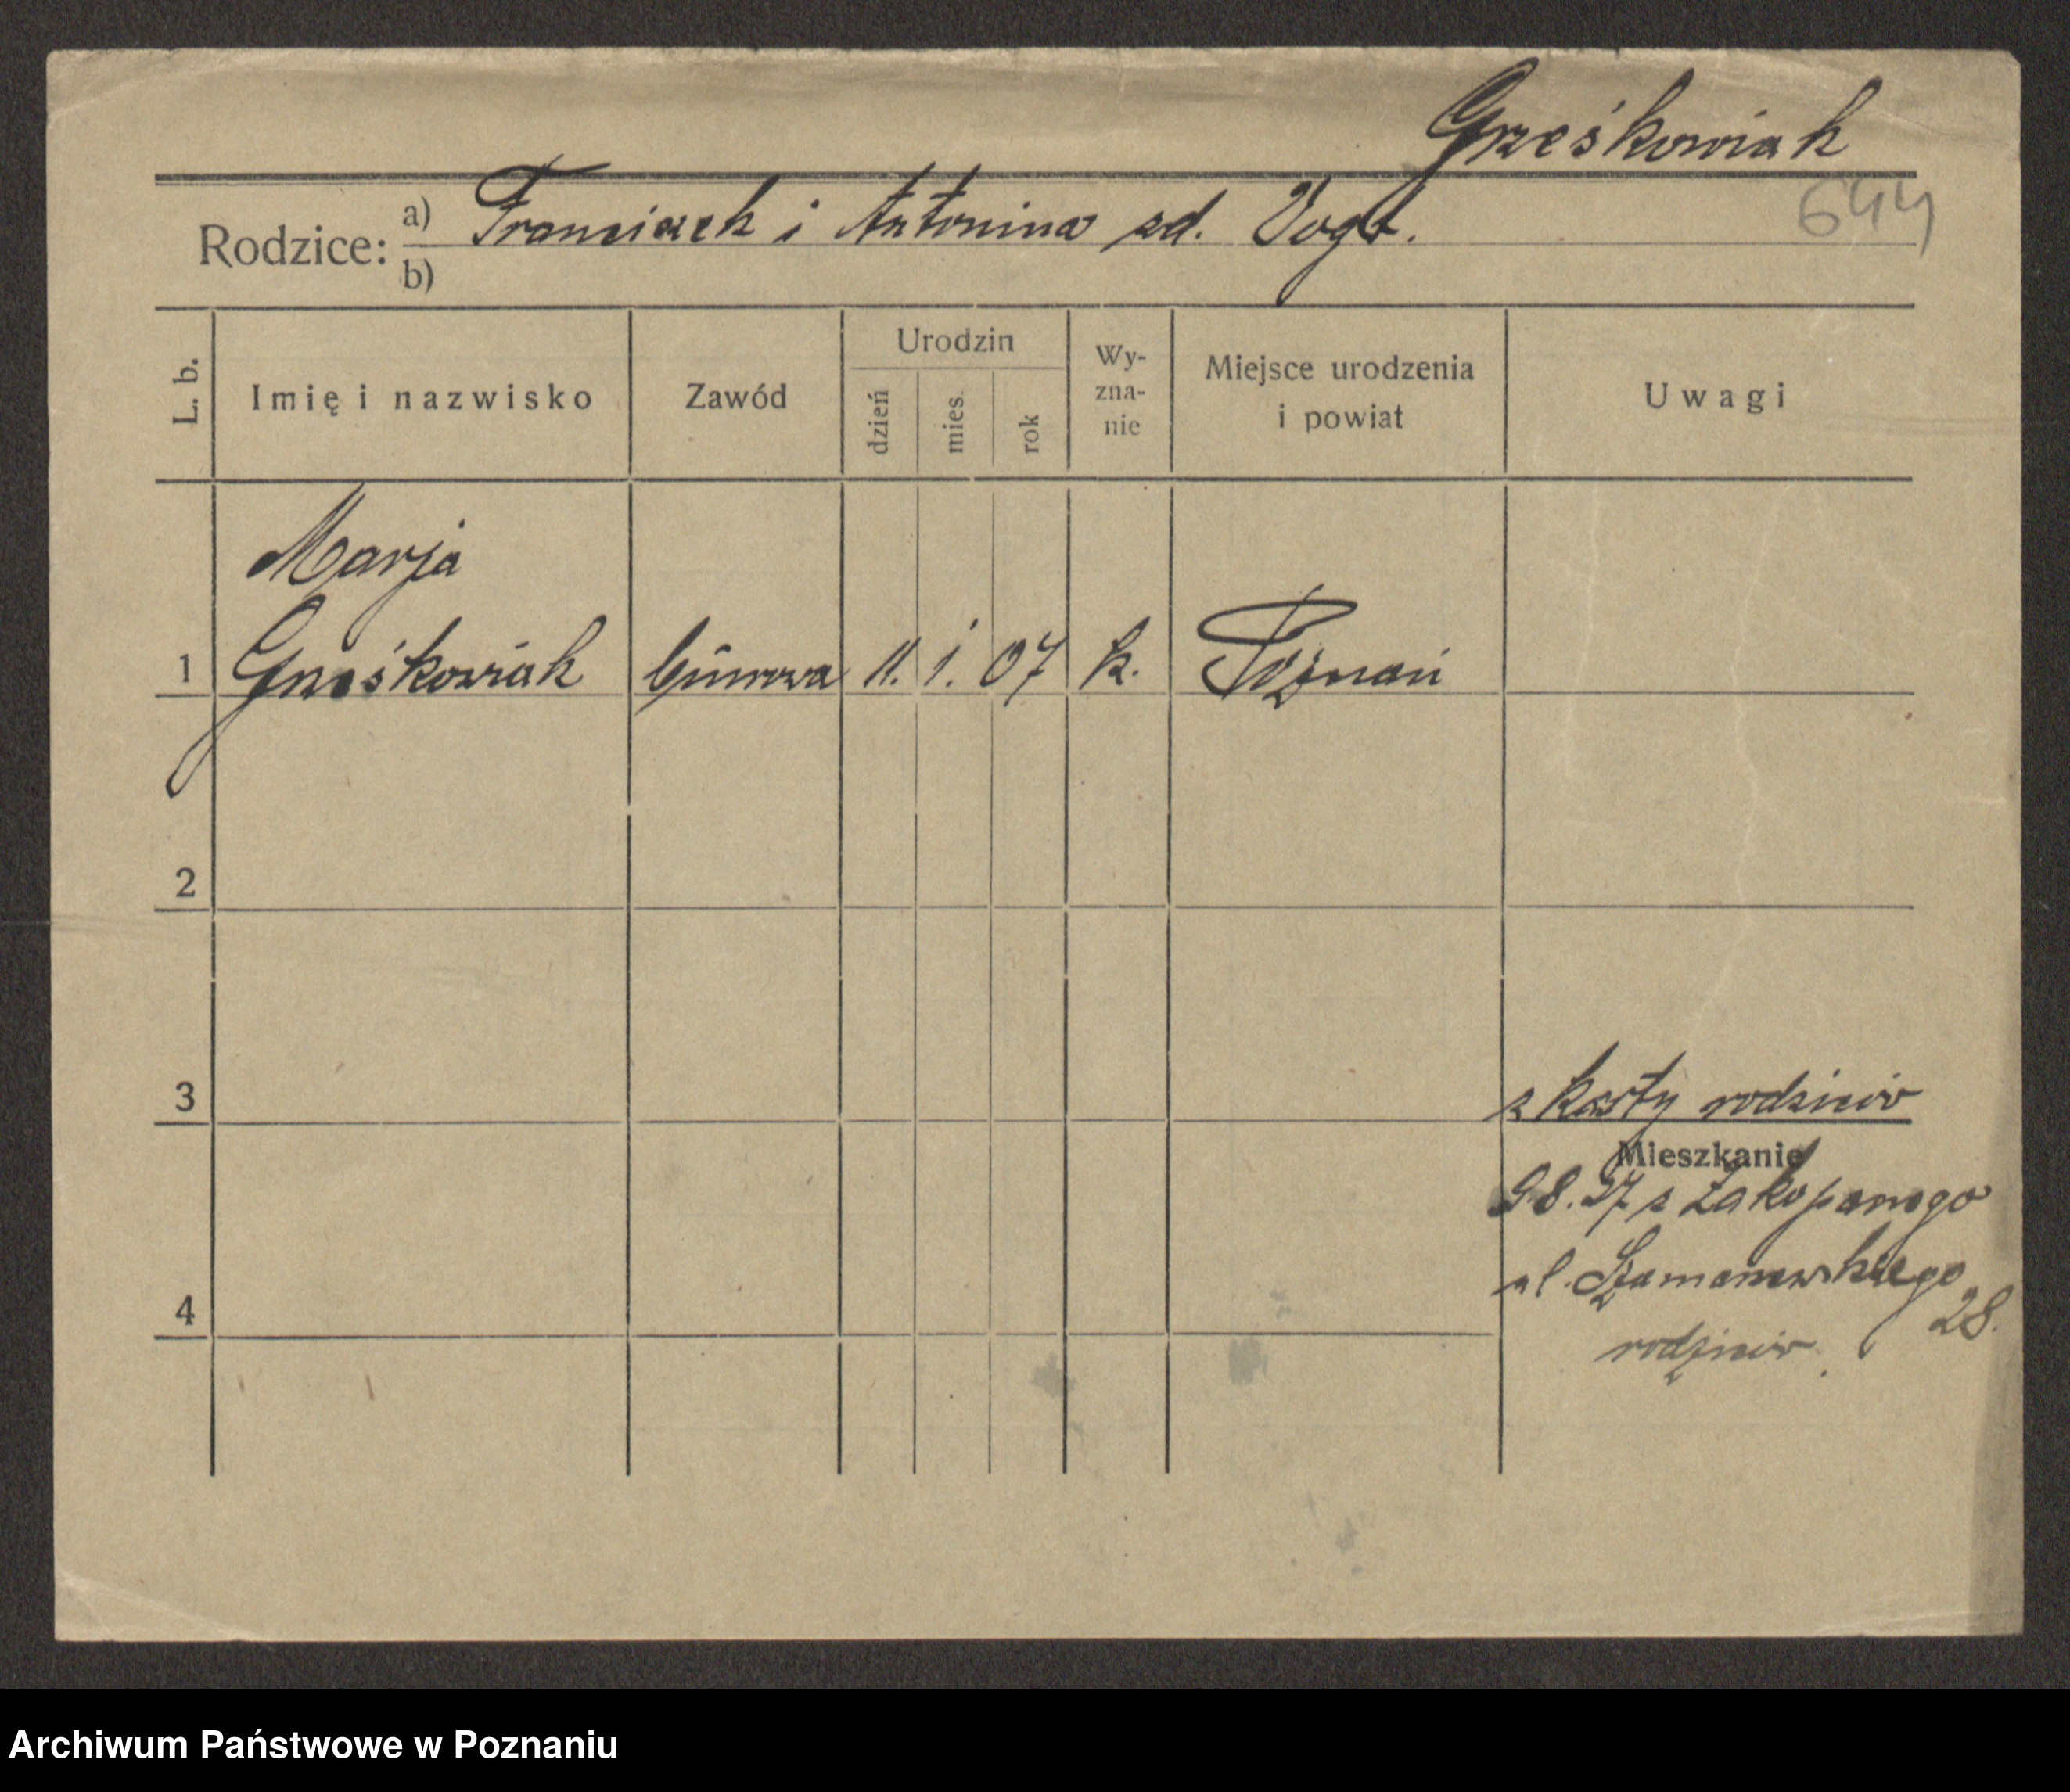 Grześkowiak
644
Rodzice: a) Franciszek i Antonina zd. Vogt.
b)
L. b. Imię i nazwisko Zawód Urodzin dzień mies. rok Wy-zna-nie Miejsce urodzenia i powiat Uwagi
Marja
1 Grześkowiak biurowa 11. 1. 07 k. Poznań
2
3
z karty rodziców
Mieszkanie
9.8.27 z Zakopanego
ul. Szamarzewskiego
28.
4
rodziców.
Archiwum Państwowe w Poznaniu